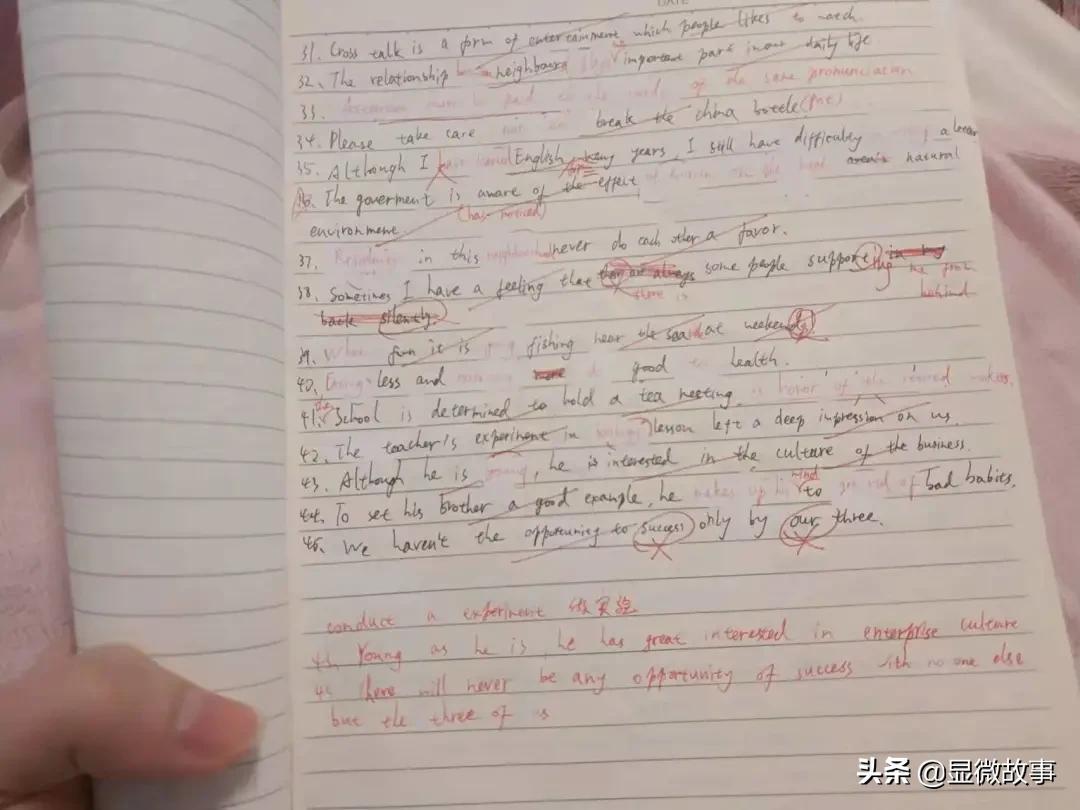 DATE
31. Cross talk is a form of entertainment which people likes to watch.
32. The relationship neighbours important part in our daily life
33. must be paid to the words of the same pronunciation
34. Please take care not break the china bottle (put)
35. Although I have learned English for many years, I still have difficulty
36. The goverment is aware of the effect of on the area's natural
(has noticed)
environment
37. Residents in this neighborhood never do each other a favor.
38. Sometimes I have a feeling that they are always some people supporting in my me from
there is behind
back silently
39. What fun it is fishing near the sea at weekends
40. Eating less and more do good to health.
41. The School is determined to hold a tea meeting in honor of the retired
42. The teacher's experiment in biology lesson left a deep impression on us.
43. Although he is young, he is interested in the culture of the business.
44. To set his brother a good example, he makes up his mind to get rid of bad habits.
45. We haven't the opportunity to success only by our three.
conduct a experiment 做实验
43. Young as he is, he has great interested in enterprise culture
45 there will never be any opportunity of success with no one else
but the three of us
头条 @显微故事